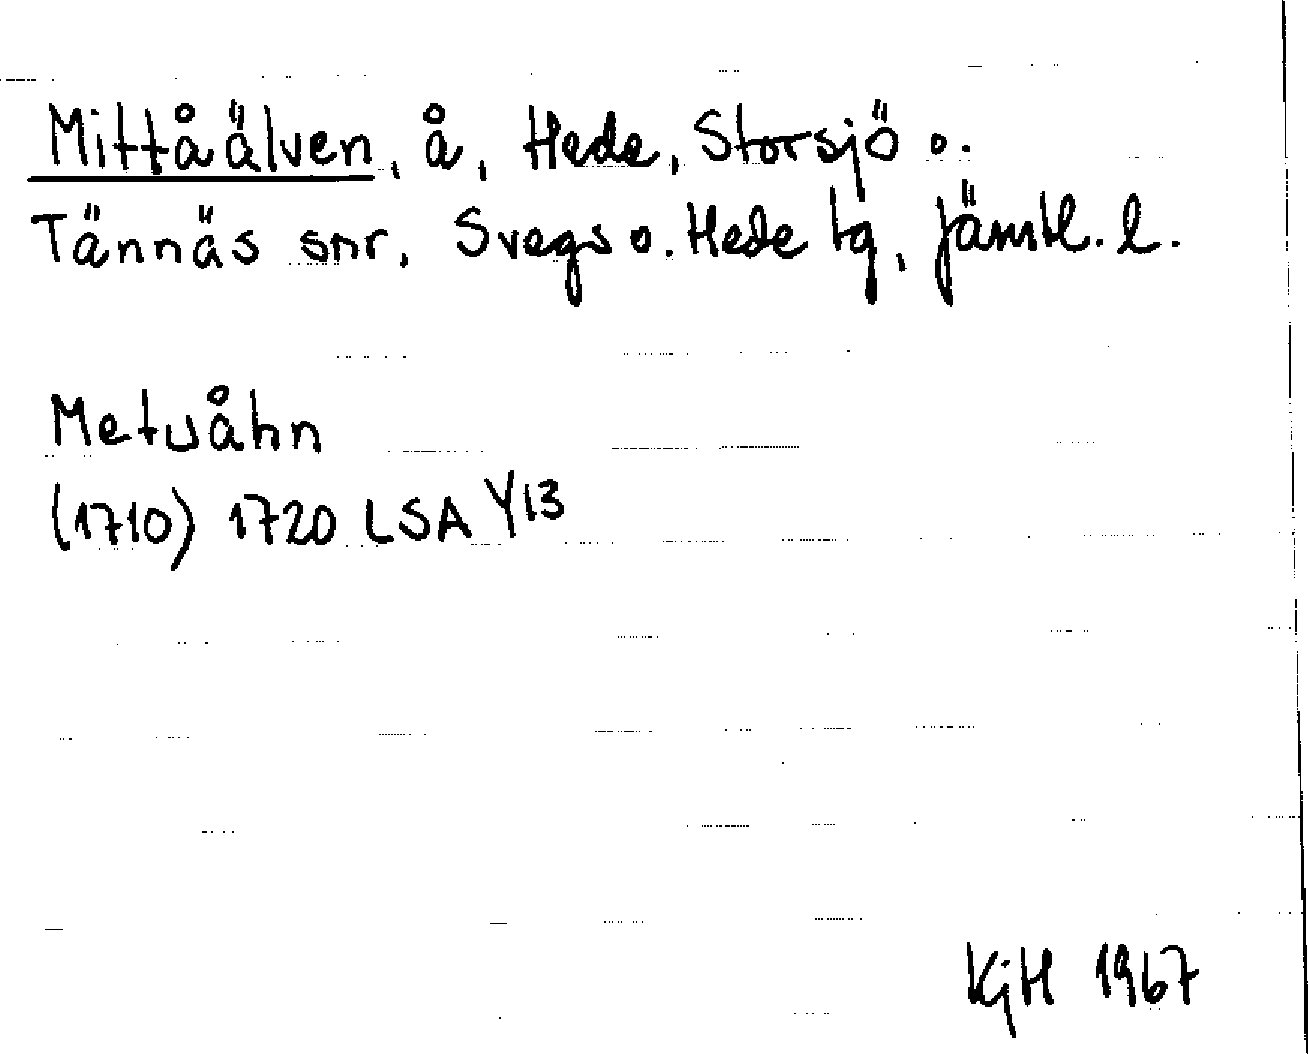 Mittåälven, å, Hede, Storsjö o.
Tännäs snr, Svegs o. Hede tg, Jämtl. l.
Metuåhn
(1710) 1720 LSA Y13
KGH 1967